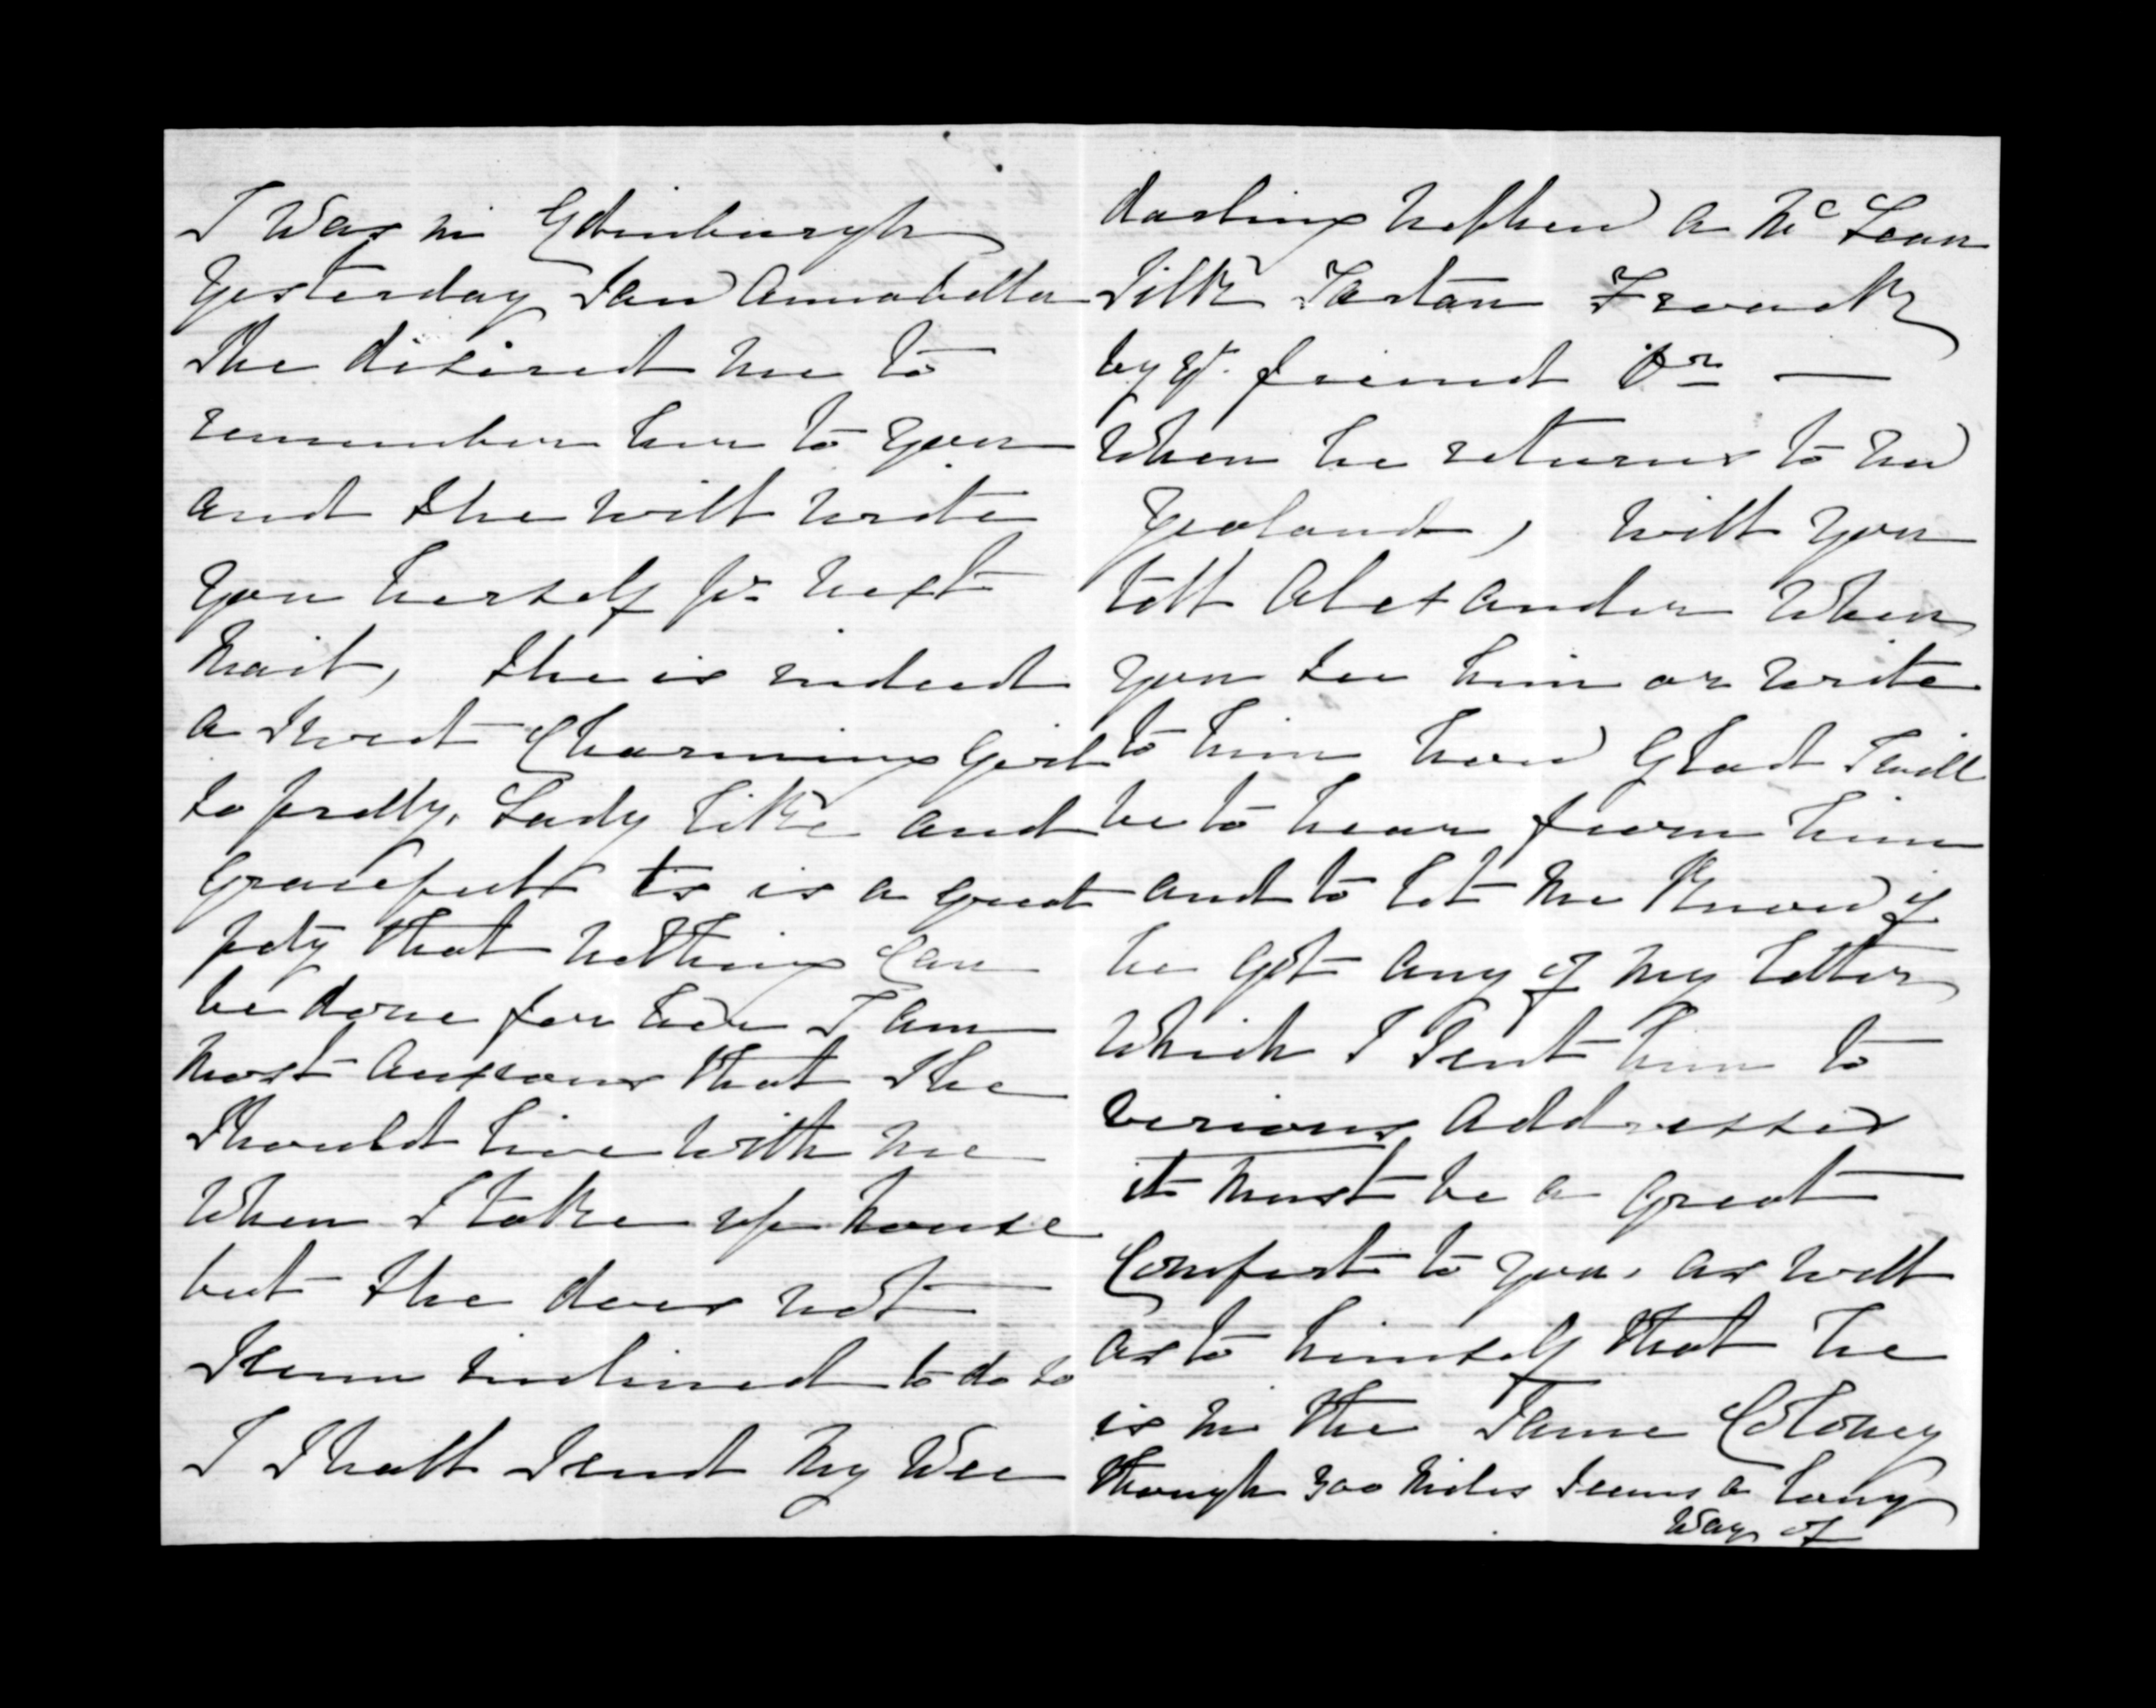 I was in Edinburgh
yesterday saw Annabella
She desired me to
remember her to you
and she will write
you herself pr. next
mail, she is indeed
a sweet Charming Girl
so pretty, Lady like and
Gracefull tis is a great
pety that nothing Can
be done for her I am
most anxious that she
should live with me
when I take up house
but she does not
seem inclined to do so
I shall send my wee
darling nephew a McLean
Silk Tartan Frock
by yr. friend Dr —
when he returns to New
Zealand, will you
tell Alexander when
you see him or write
to him how Glad I will
be to hear from him
and to let me know if
he got any of my letters
which I sent him to
verious addresses
it must be a great
Comfort to you, as well
as to himself that he
is in the same Coloney
though 300 miles seems a long
way of